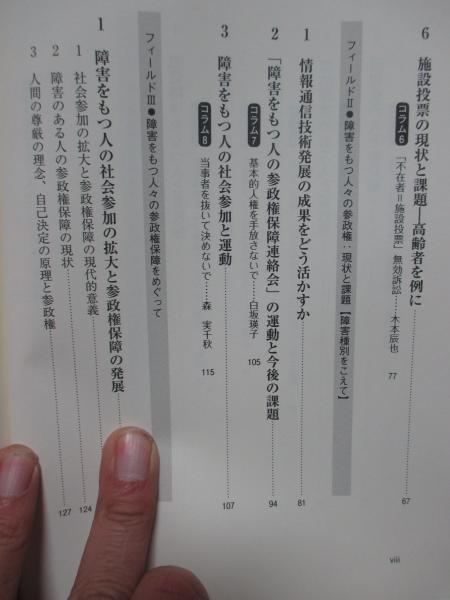 6 施設投票の現状と課題―高齢者を例に……67
コラム6 「不在者＝施設投票」無効訴訟……木本辰也 77
フィールドⅡ●障害をもつ人々の参政権：現状と課題【障害種別をこえて】
1 情報通信技術発展の成果をどう活かすか……81
2 「障害をもつ人の参政権保障連絡会」の運動と今後の課題……94
コラム7 基本的人権を手放さないで……白坂瑛子 105
3 障害をもつ人の社会参加と運動……107
コラム8 当事者を抜いて決めないで……森 実千秋 115
フィールドⅢ●障害をもつ人々の参政権保障をめぐって
1 障害をもつ人の社会参加の拡大と参政権保障の発展……
1 社会参加の拡大と参政権保障の現代的意義……124
2 障害のある人の参政権保障の現状……127
3 人間の尊厳の理念、自己決定の原理と参政権
viii